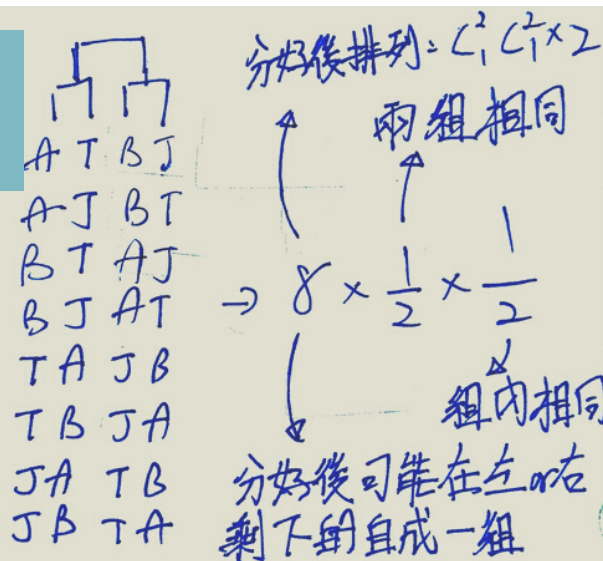 分好後排列: C²₁ C²₁ × 2
兩組相同
A T B J
A J B T
B T A J
B J A T
T A J B
T B J A
J A T B
J B T A
→ 8 × 1/2 × 1/2
組內相同
分好後可能在左or右
剩下的自成一組